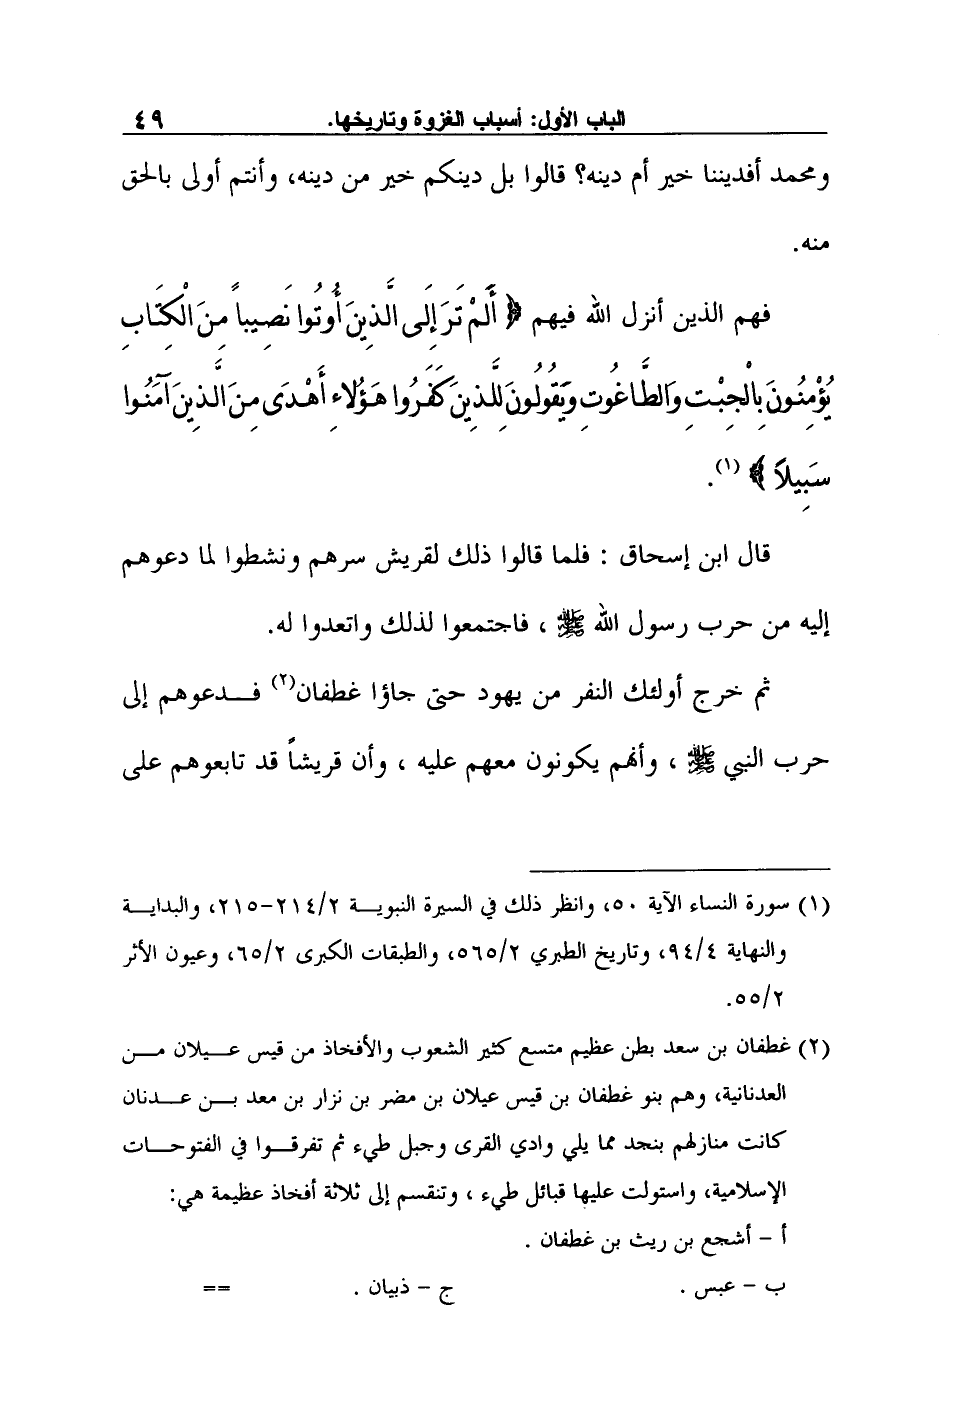 الباب الأول: أسباب الغزوة وتاريخها. ٤٩
ومحمد أفديننا خير أم دينه؟ قالوا بل دينكم خير من دينه، وأنتم أولى بالحق
منه.
فهم الذين أنزل الله فيهم ﴿ أَلَمْ تَرَ إِلَى الَّذِينَ أُوتُوا نَصِيباً مِنَ الْكِتَابِ
يُؤْمِنُونَ بِالْجِبْتِ وَالطَّاغُوتِ وَيَقُولُونَ لِلَّذِينَ كَفَرُوا هَؤُلاءِ أَهْدَى مِنَ الَّذِينَ آمَنُوا
سَبِيلاً ﴾ (١).
قال ابن إسحاق : فلما قالوا ذلك لقريش سرهم ونشطوا لما دعوهم
إليه من حرب رسول الله ﷺ ، فاجتمعوا لذلك واتعدوا له.
ثم خرج أولئك النفر من يهود حتى جاؤا غطفان(٢) فـــدعوهم إلى
حرب النبي ﷺ ، وأنهم يكونون معهم عليه ، وأن قريشاً قد تابعوهم على
(١) سورة النساء الآية ٥٠، وانظر ذلك في السيرة النبويـــة ٢١٤/٢-٢١٥، والبدايـــة
والنهاية ٩٤/٤، وتاريخ الطبري ٥٦٥/٢، والطبقات الكبرى ٦٥/٢، وعيون الأثر
٥٥/٢.
(٢) غطفان بن سعد بطن عظيم متسع كثير الشعوب والأفخاذ من قيس عـــيلان مـــن
العدنانية، وهم بنو غطفان بن قيس عيلان بن مضر بن نزار بن معد بـــن عـــدنان
كانت منازلهم بنجد مما يلي وادي القرى وجبل طيء ثم تفرقـــوا في الفتوحـــات
الإسلامية، واستولت عليها قبائل طيء ، وتنقسم إلى ثلاثة أفخاذ عظيمة هي:
أ - أشجع بن ريث بن غطفان .
ب - عبس . ج - ذبيان . ==